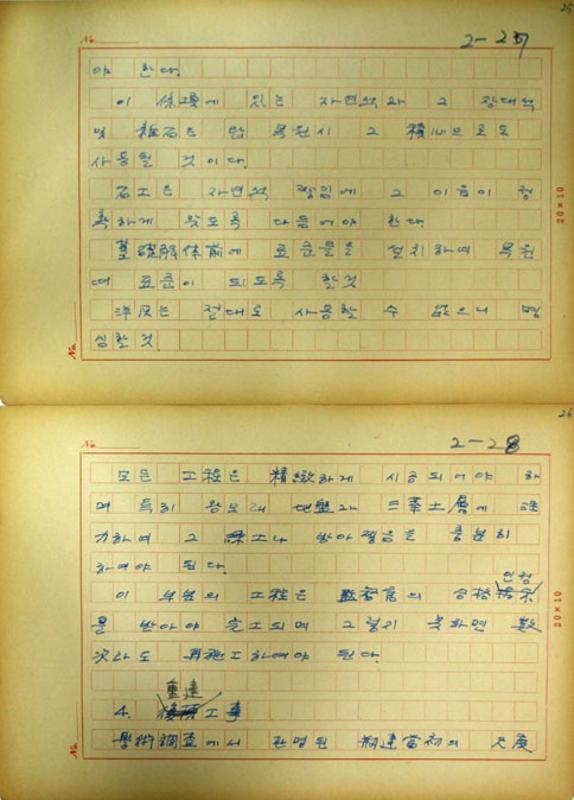 25
No.
2-27
야 한다.
이 條項에 있는 자연석과 그 장대석
및 雜石은 탑 복원시 그 積心으로도
사용될 것이다.
石工은 자연석 쌓임에 그 이음이 정
확하게 맞도록 다듬어야 한다.
基礎解体前에 표준틀을 설치하여 복원
때 표준이 되도록 할것
洋灰는 절대로 사용할 수 없으니 명
심할것.
20×10
No.
26
No.
2-28
모든 工程은 精緻하게 시공되어야 하
며 특히 地盤과 三華土層에 注
力하여 그 충분히
하여야 된다.
인정
이 부분의 工程은 監督官의 合格
을 받아야 完工되며 그렇지 못하면 數
次라도 再施工하여야 된다.
重建
4. 工事
學術調査에서 판명된 創建當初의 尺度
20×10
No.